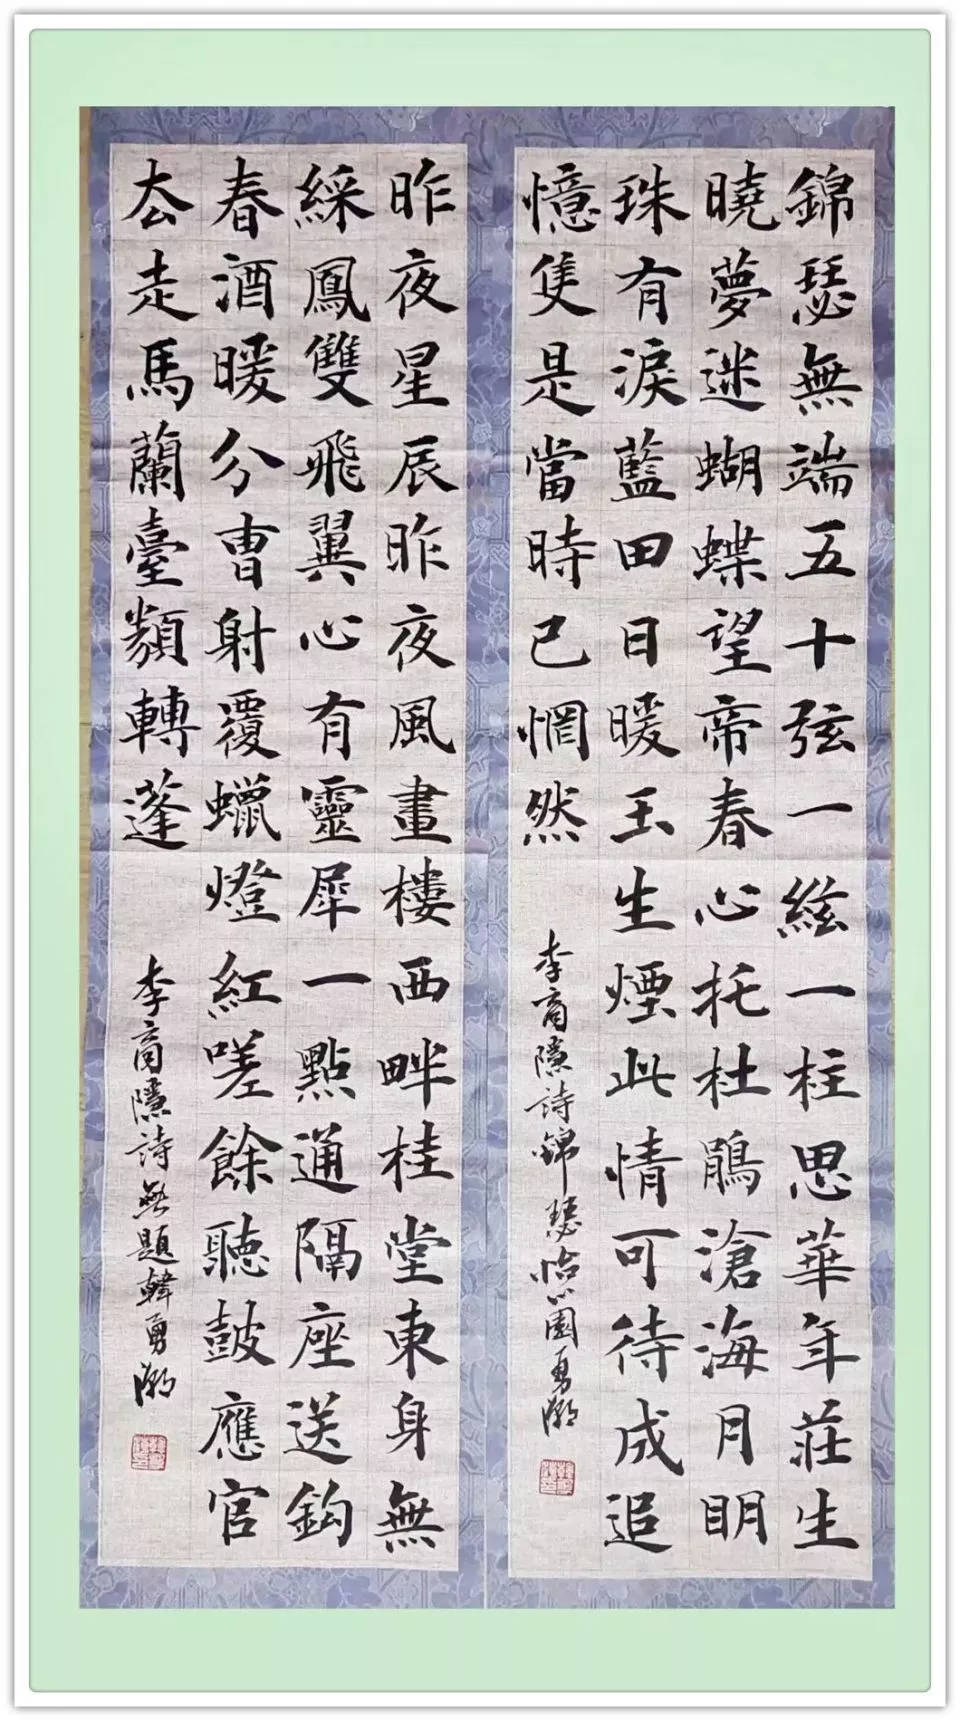 錦瑟無端五十弦一絃一柱思華年莊生
曉夢迷蝴蝶望帝春心托杜鵑滄海月明
珠有淚藍田日暖玉生煙此情可待成追
憶隻是當時已惘然
李商隱詩錦瑟怡心園勇潮
昨夜星辰昨夜風畫樓西畔桂堂東身無
綵鳳雙飛翼心有靈犀一點通隔座送鈎
春酒暖分曹射覆蠟燈紅嗟餘聽鼓應官
去走馬蘭臺類轉蓬
李商隱詩無題韓勇潮